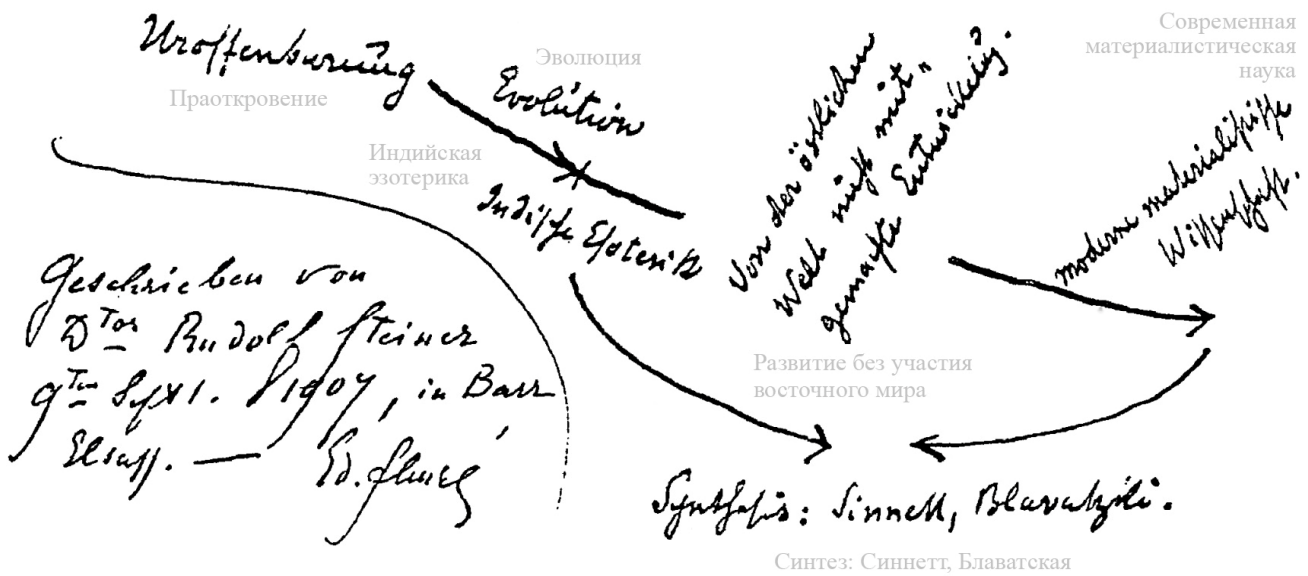 Uroffenbarung
Праоткровение
Эволюция
Evolution
Индийская
эзотерика
Indische Esoterik
Von der östlichen
Welt nicht mit-
gemachte Entwickelung.
Развитие без участия
восточного мира
Современная
материалистическая
наука
moderne materialistische
Wissenschaft.
Geschrieben von
D^Tor Rudolf Steiner
9^Ten Sept. 1907, in Barr,
Elsass. — Ed. Schuré
Synthesis: Sinnett, Blavatzki.
Синтез: Синнетт, Блаватская